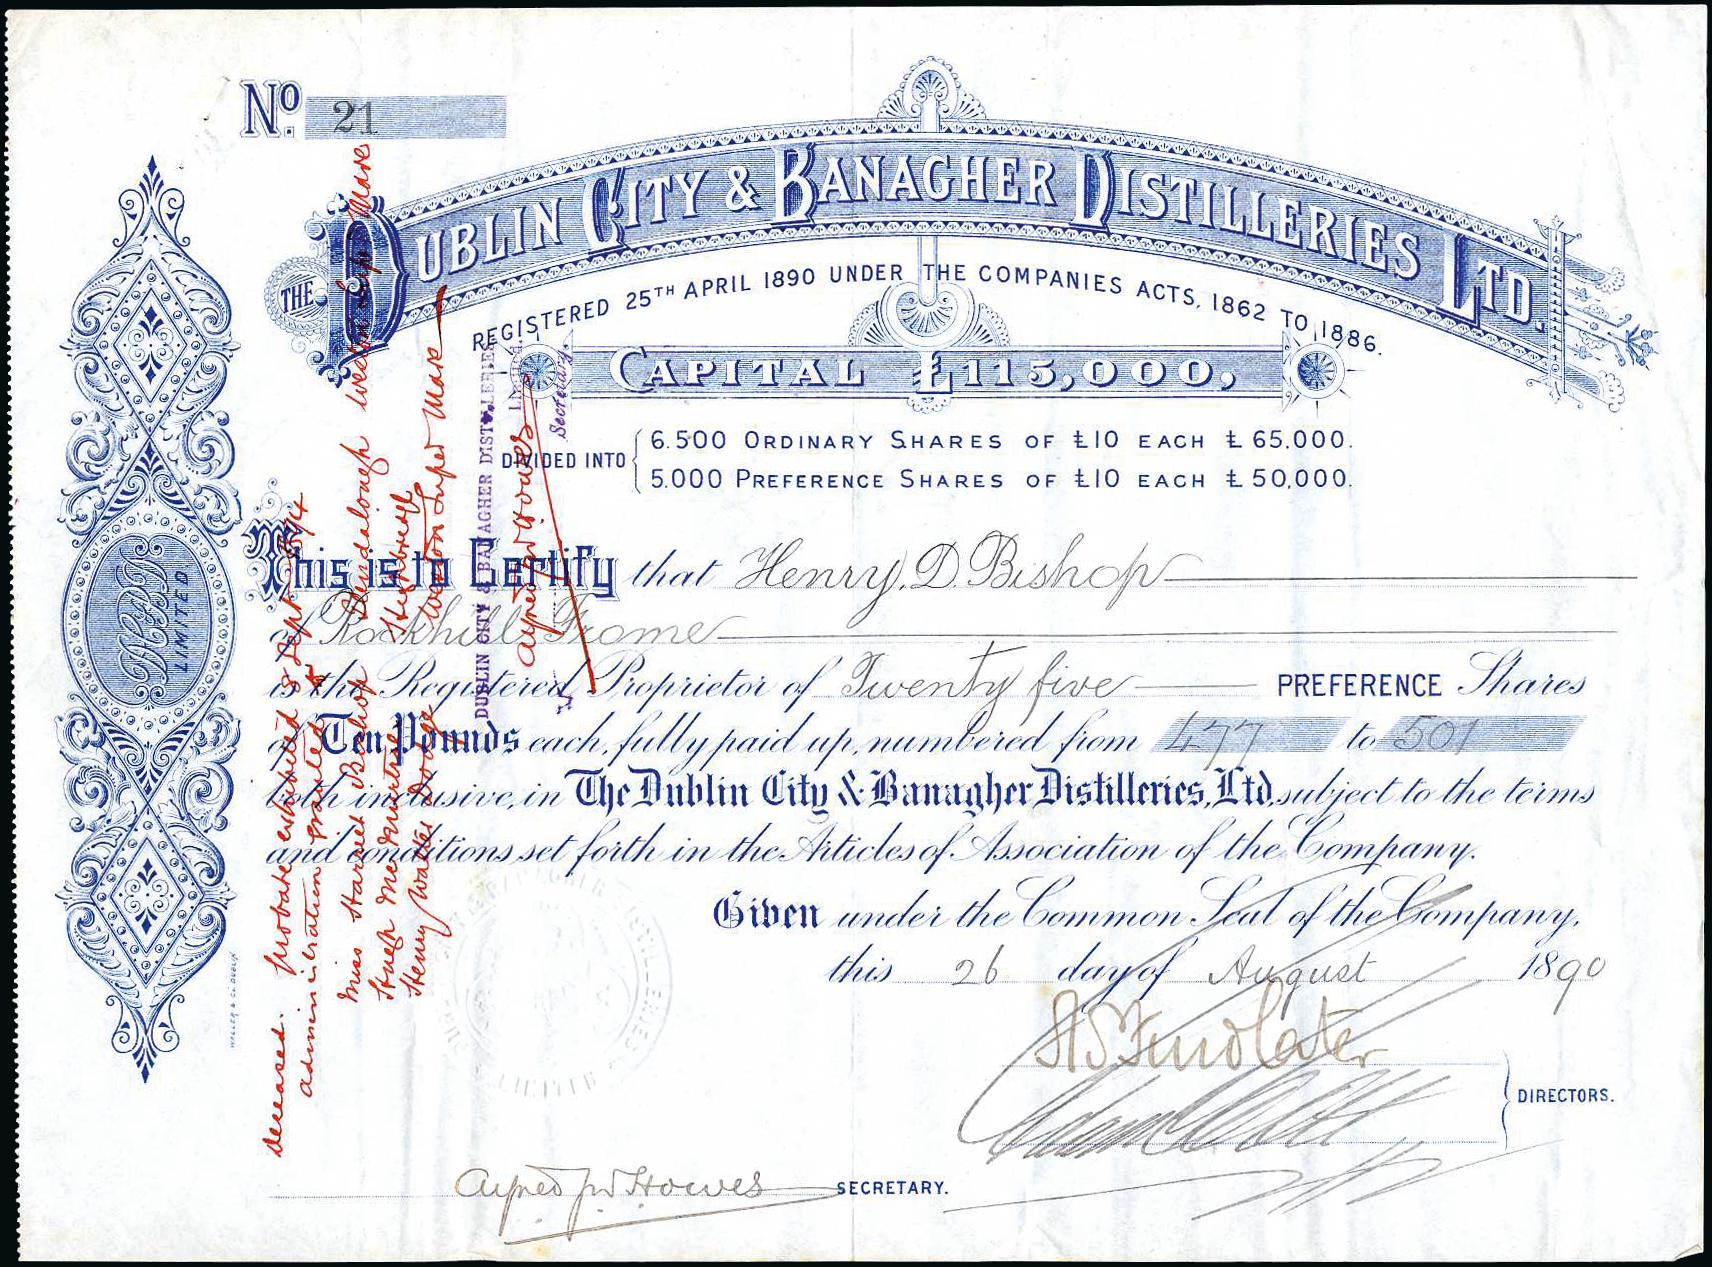 No. 21
THE DUBLIN CITY & BANAGHER DISTILLERIES LTD.
REGISTERED 25TH APRIL 1890 UNDER THE COMPANIES ACTS, 1862 TO 1886.
CAPITAL £115,000,
DIVIDED INTO
6.500 ORDINARY SHARES OF £10 EACH £65,000.
5.000 PREFERENCE SHARES OF £10 EACH £50,000.
This is to Certify that Henry. D. Bishop
of Rockhills Frome
is the Registered Proprietor of Twenty five PREFERENCE Shares
of Ten Pounds each, fully paid up, numbered from 477 to 501
both inclusive, in The Dublin City & Banagher Distilleries, Ltd, subject to the terms
and conditions set forth in the Articles of Association of the Company.
Given under the Common Seal of the Company,
this 26 day of August 1890
DIRECTORS.
Alfred J W Howes SECRETARY.
DC&BD
LIMITED
deceased. probate exhibited 8 Sept 1894
administration granted to
Miss Bishop Weston Super Mare
Hugh
Henry Walter Weston Super Mare
DUBLIN CITY & BANAGHER DISTILLERIES
LIMITED.
Alfred J W Howes
Secretary.
WALLER & CO DUBLIN